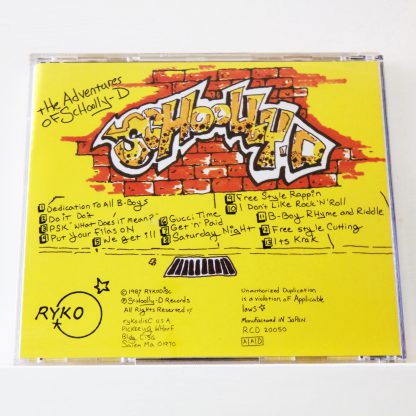 the Adventures
of Schoolly-D
SCHOOLLY.D
1 Dedication To All B-Boys
2 Do it Do it
3 PSK "What Does it mean?"
4 Put your filas on
5 We get ill
6 Gucci Time
7 Get 'n' Paid
8 Saturday Night
9 Free Style Rappin
10 I Don't Like Rock 'N' Roll
11 B-Boy Rhyme and Riddle
12 Free style Cutting
13 Its Krak
RYKO
© 1987 RYKODISC
℗ Schoolly-D Records
All Rights Reserved
rykodisc U.S.A.
Pickering Wharf
Bldg. C-3G
Salem Ma 01970
Unauthorized Duplication
is a violation of Applicable
laws
Manufactured IN JAPAN
RCD 20050
AAD